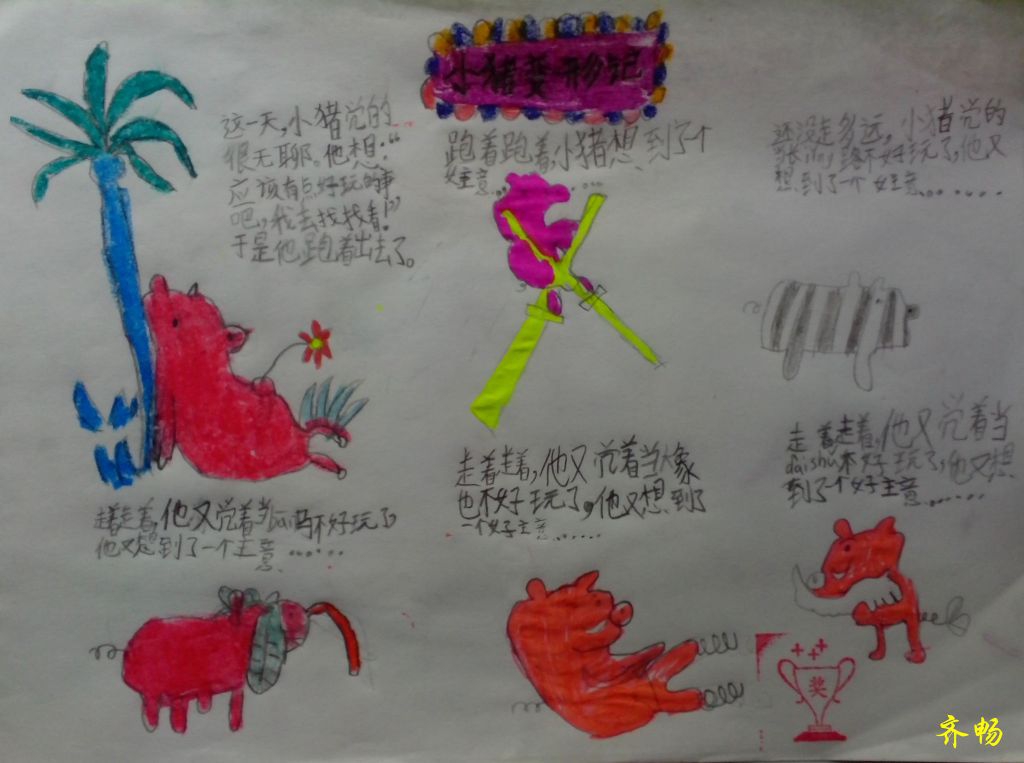 小猪变形记
这一天,小猪觉的
很无聊。他想:“
应该有点好玩的事
吧,我去找找看!”
于是他跑着出去了。
跑着跑着,小猪想到了个
好主意……
还没走多远,小猪觉的
不好玩了,他又
想到了一个好主意……
走着走着,他又觉着当ban马不好玩了
他又想到了一个主意……
走着走着,他又觉着当大象
也不好玩了。他又想到了
一个好主意……
走着走着,他又觉着当
daishu不好玩了,他又想
到了个好主意……
奖
齐畅